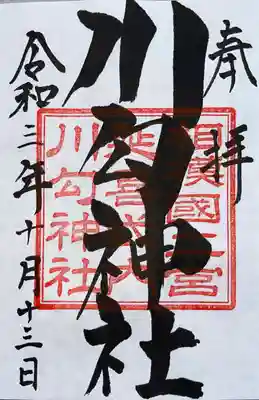 奉拝
川勾神社
令和二年十月十三日
相模國二宮
延喜式内
川勾神社